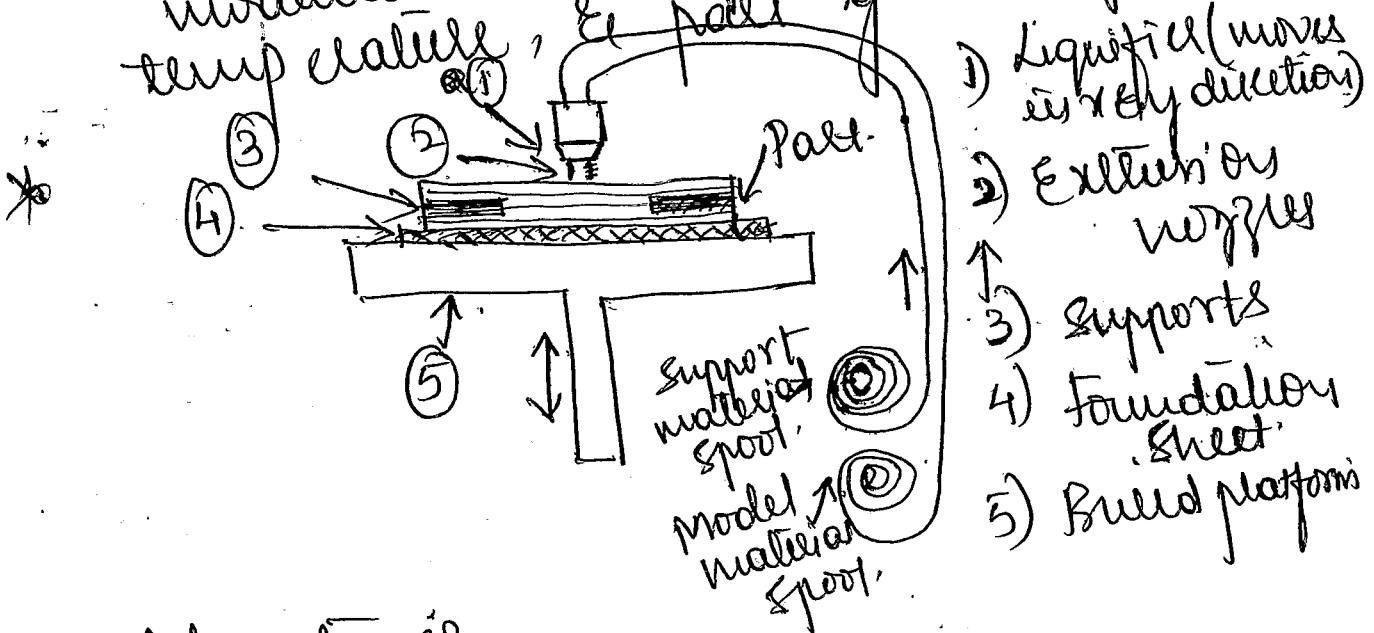 temperature, & part
1
2
3
4
5
Part.
Support
material
spool.
Model
material
spool.
1) Liquifier (moves
in x & y direction)
2) Extrusion
nozzles
3) Supports
4) Foundation
sheet.
5) Build platform